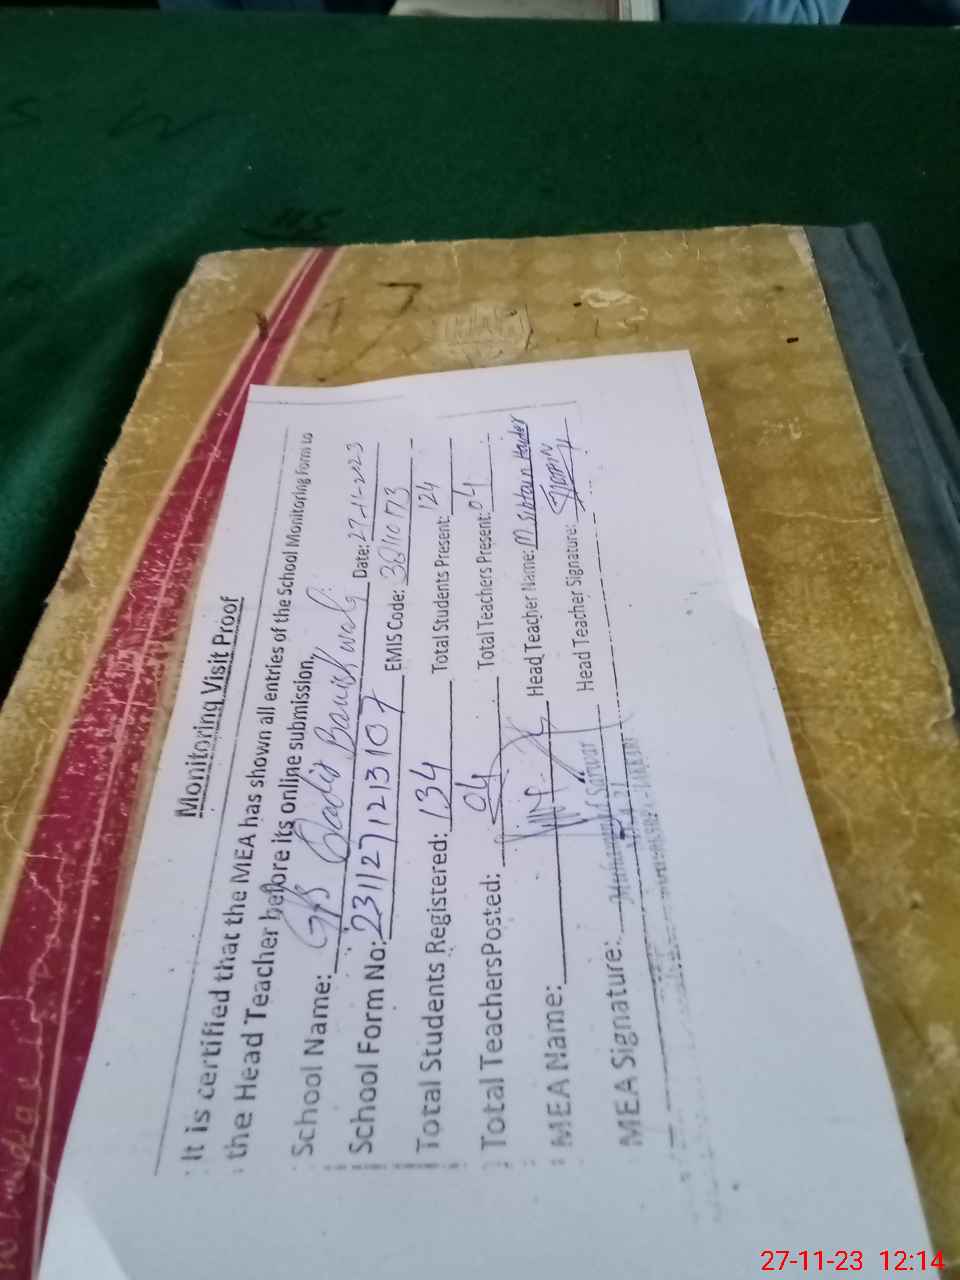 Monitoring Visit Proof
It is certified that the MEA has shown all entries of the School Monitoring Form to
the Head Teacher before its online submission.
School Name: GPS Date: 27-11-2023
School Form No: 2311271213107 EMIS Code:
Total Students Registered: 134 Total Students Present: 124
Total Teachers Posted: 04 Total Teachers Present: 04
MEA Name: Head Teacher Name: M Sibtain Haider
MEA Signature: Head Teacher Signature:
Muhammad Sarwar
27-11-23 12:14